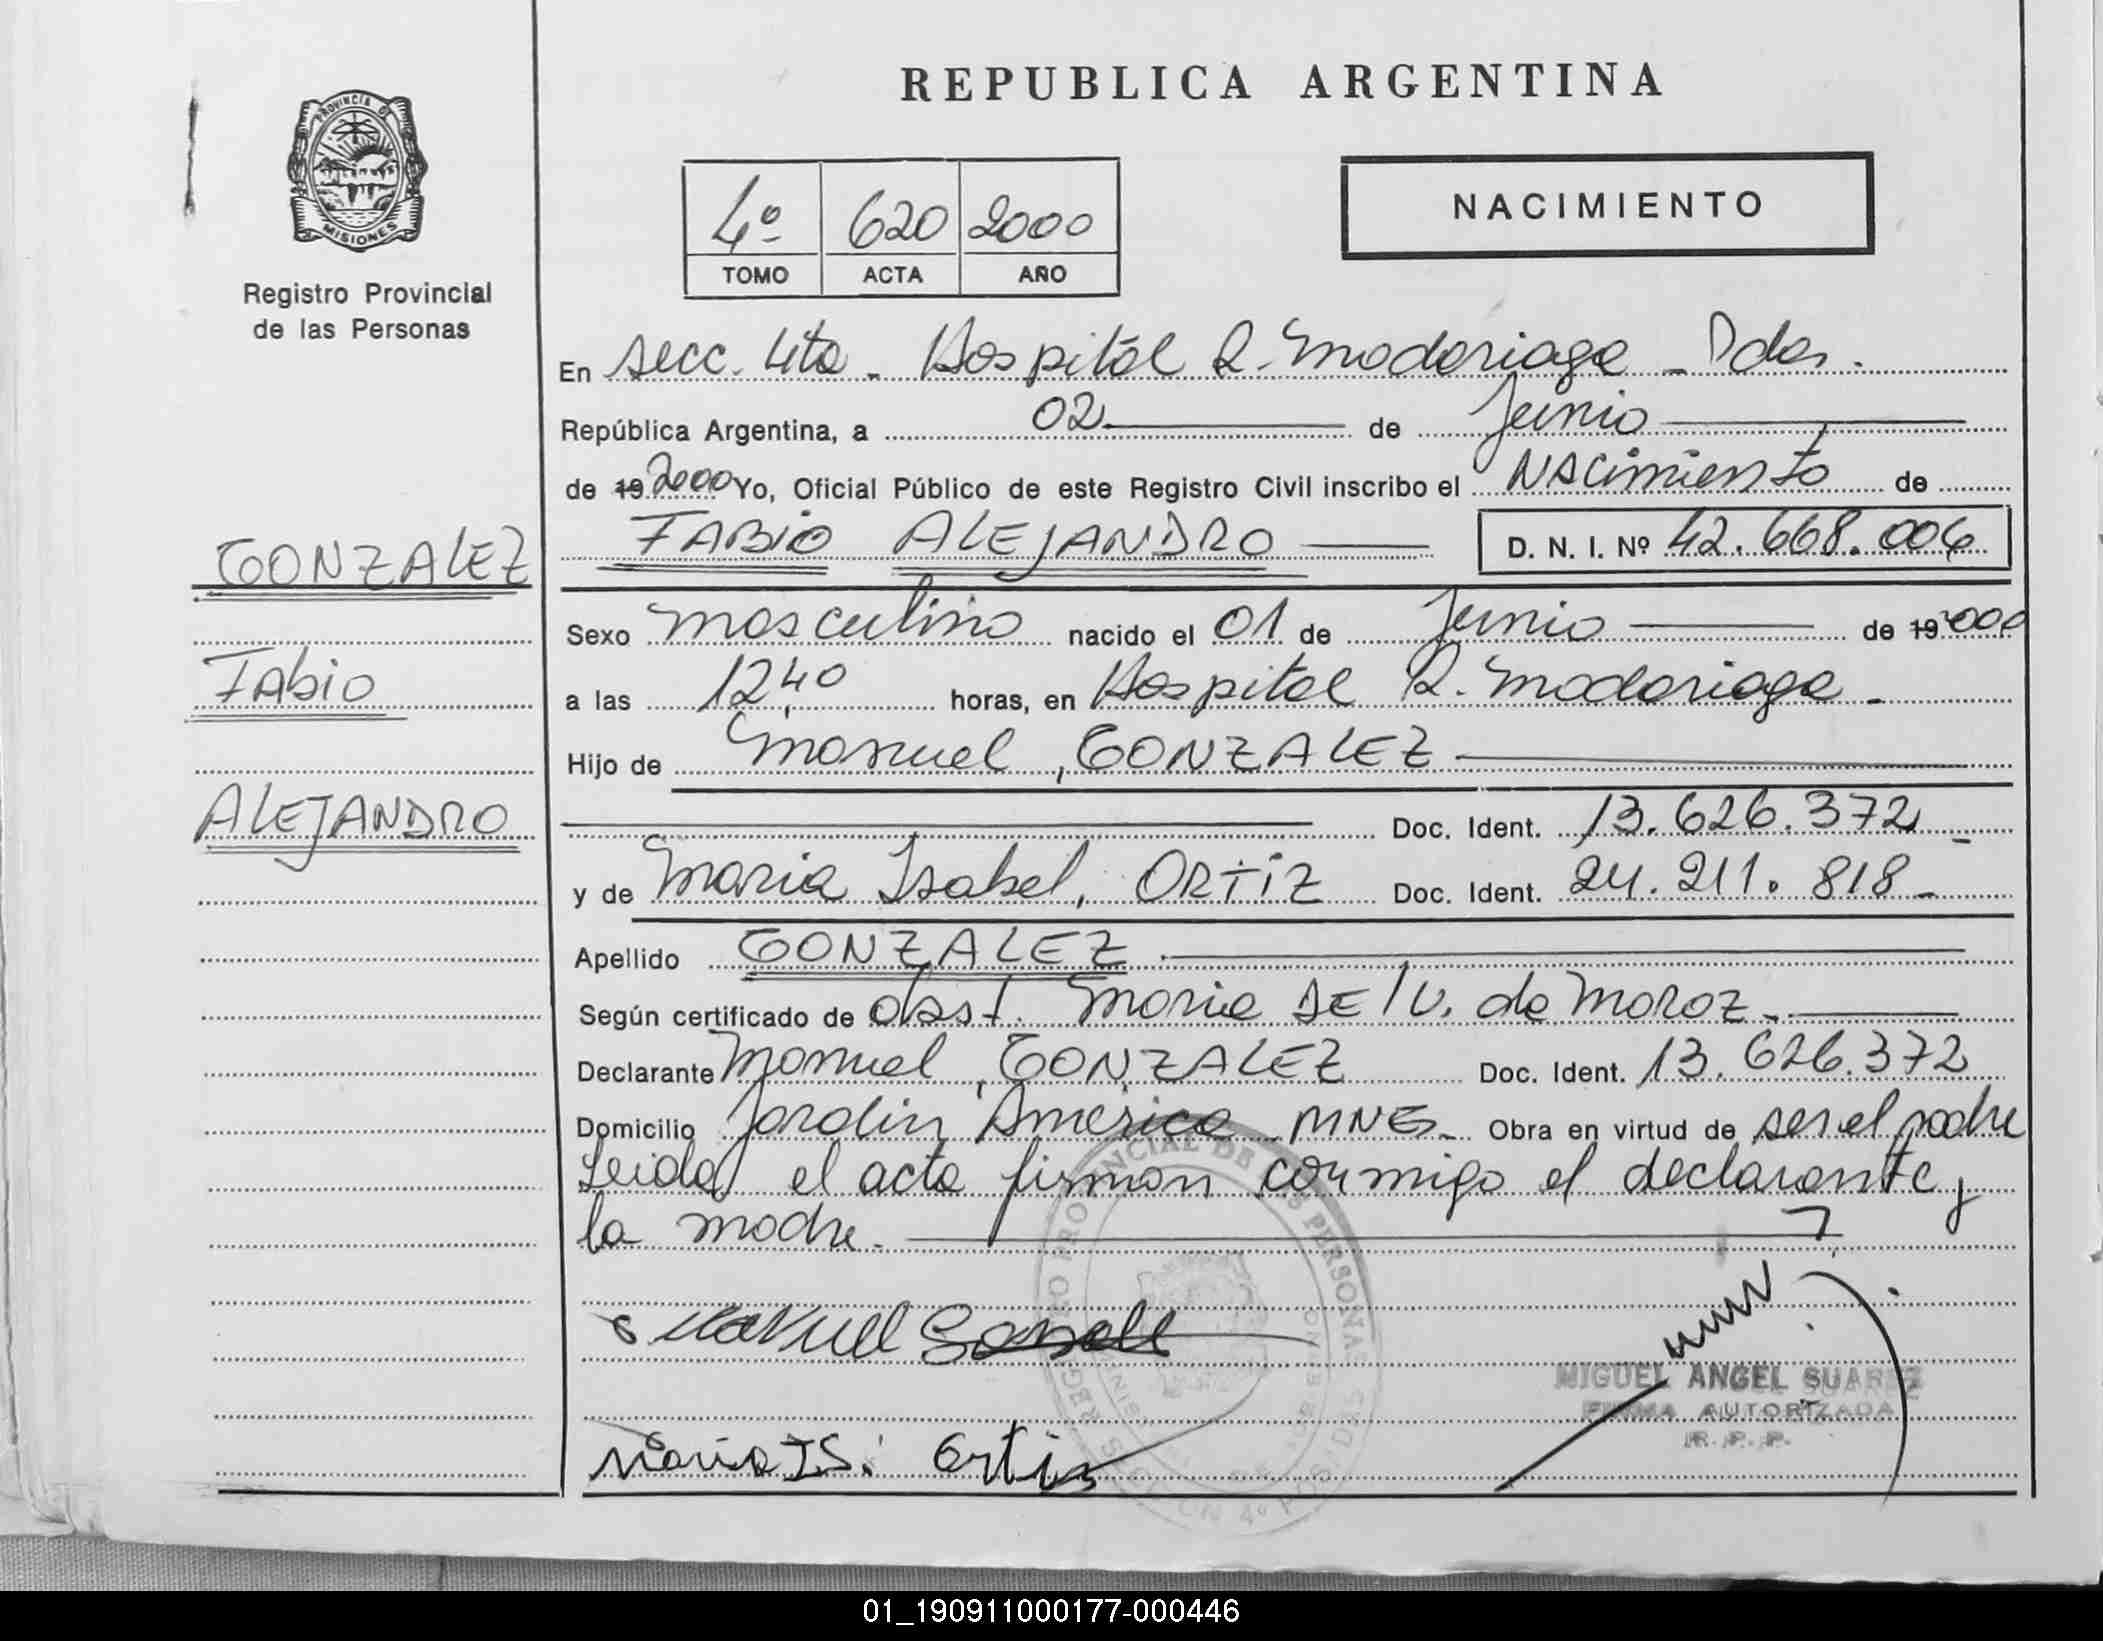 REPUBLICA ARGENTINA
PROVINCIA DE
MISIONES
Registro Provincial
de las Personas
4º 620 2000
TOMO ACTA AÑO
NACIMIENTO
En secc. 4ta - Hospital R. Madariaga - Pdas.
República Argentina, a 02 de Junio
de 19 2000 Yo, Oficial Público de este Registro Civil inscribo el NAcimiento de
FABIO ALEJANDRO D. N. I. Nº 42.668.006
GONZALEZ
Fabio
ALEJANDRO
Sexo masculino nacido el 01 de Junio de 19 2000
a las 12,40 horas, en Hospital R. Madariaga -
Hijo de Manuel, GONZALEZ
Doc. Ident. 13.626.372 -
y de Maria Isabel, ORTIZ Doc. Ident. 24.211.818 -
Apellido GONZALEZ
Según certificado de obst. Maria DE l V. de Moroz -
Declarante Manuel, GONZALEZ Doc. Ident. 13.626.372
Domicilio Jardin America MNES - Obra en virtud de ser el padre
Leida el acta firman conmigo el declarante y
la madre.
REGISTRO PROVINCIAL DE LAS PERSONAS
SECCION 4º POSADAS
Manuel
Maria IS. Ortiz
MIGUEL ANGEL SUAREZ
FIRMA AUTORIZADA
R. P. P.
01_190911000177-000446